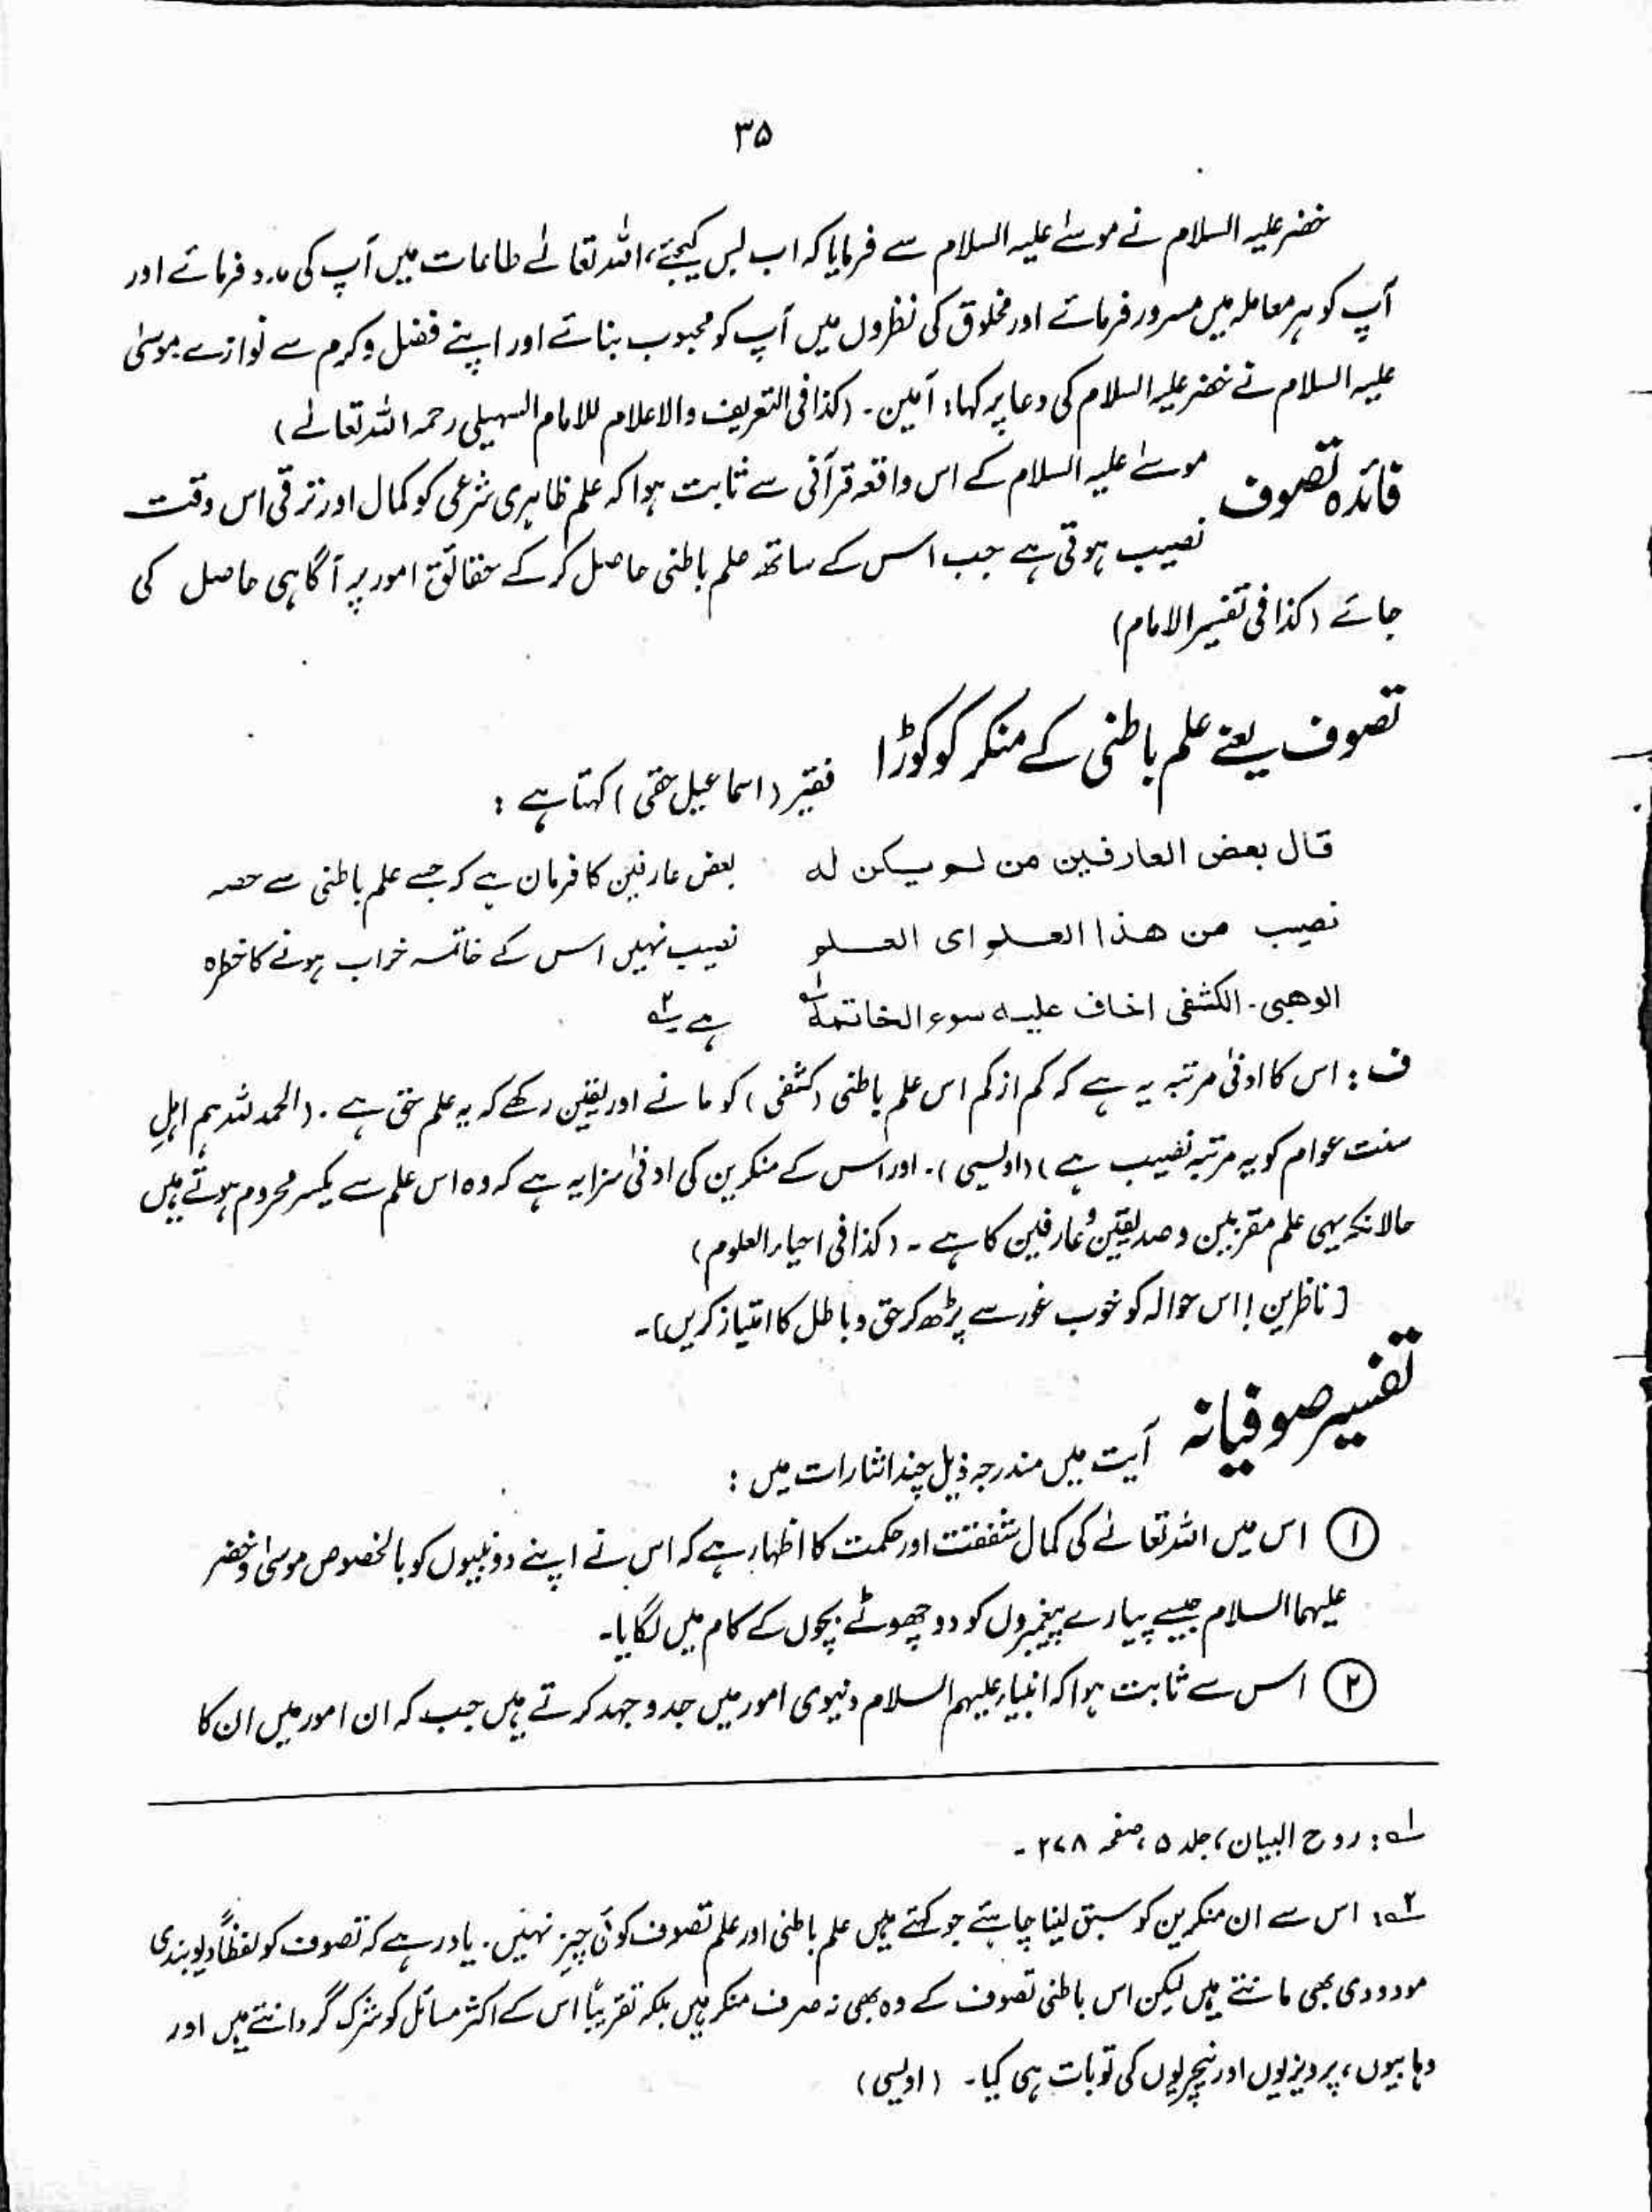 ۳۵
خضر علیہ السلام نے موسےٰ علیہ السلام سے فرمایا کہ اب بس کیجئے، اللہ تعالےٰ طاعات میں آپ کی مدد فرمائے اور
آپ کو ہر معاملہ میں مسرور فرمائے اور مخلوق کی نظروں میں آپ کو محبوب بنائے اور اپنے فضل و کرم سے نوازے۔ موسیٰ
علیہ السلام نے خضر علیہ السلام کی دعا پر کہا: آمین۔ (کذا فی التعریف والاعلام للامام السہیلی رحمہ اللہ تعالےٰ)
فائدہ تصوف موسےٰ علیہ السلام کے اس واقعہ قرآنی سے ثابت ہوا کہ علم ظاہری شرعی کو کمال اور ترقی اس وقت
نصیب ہوتی ہے جب اس کے ساتھ علم باطنی حاصل کر کے حقائق امور پر آگاہی حاصل کی
جائے (کذا فی تفسیر الامام)
تصوف یعنے علم باطنی کے منکر کو کوڑا فقیر (اسماعیل حقی) کہتا ہے :
قال بعض العارفین من لم یکن لہ بعض عارفین کا فرمان ہے کہ جسے علم باطنی سے حصہ
نصیب من ھذا العلم ای العلم نصیب نہیں اس کے خاتمہ خراب ہونے کا خطرہ
الوھبی۔ الکشفی اخاف علیہ سوء الخاتمة؎۱ ہے؎۲
ف : اس کا ادنیٰ مرتبہ یہ ہے کہ کم از کم اس علم باطنی (کشفی) کو مانے اور یقین رکھے کہ یہ علم حق ہے۔ (الحمد للہ ہم اہلِ
سنت عوام کو یہ مرتبہ نصیب ہے) (اویسی)۔ اور اس کے منکرین کی ادنیٰ سزا یہ ہے کہ وہ اس علم سے یکسر محروم ہوتے ہیں
حالانکہ یہی علم مقربین و صدیقین و عارفین کا ہے۔ (کذا فی احیاء العلوم)
[ ناظرین! اس حوالہ کو خوب غور سے پڑھ کر حق و باطل کا امتیاز کریں]۔
تفسیر صوفیانہ آیت میں مندرجہ ذیل چند اشارات ہیں :
① اس میں اللہ تعالےٰ کی کمال شفقت اور حکمت کا اظہار ہے کہ اس نے اپنے دو نبیوں کو بالخصوص موسیٰ و خضر
علیہما السلام جیسے پیارے پیغمبروں کو دو چھوٹے بچوں کے کام میں لگایا۔
② اس سے ثابت ہوا کہ انبیاء علیہم السلام دنیوی امور میں جدوجہد کرتے ہیں جب کہ ان امور میں ان کا
؎۱ : روح البیان، جلد ۵، صفحہ ۲۷۸ ۔
؎۲ : اس سے ان منکرین کو سبق لینا چاہئے جو کہتے ہیں علم باطنی اور علم تصوف کوئی چیز نہیں۔ یاد رہے کہ تصوف کو لفظاً دیوبندی
مودودی بھی مانتے ہیں لیکن اس باطنی تصوف کے وہ بھی نہ صرف منکر ہیں بلکہ تقریباً اس کے اکثر مسائل کو شرک گردانتے ہیں اور
وہابیوں، پرویزیوں اور نیچریوں کی تو بات ہی کیا۔ (اویسی)